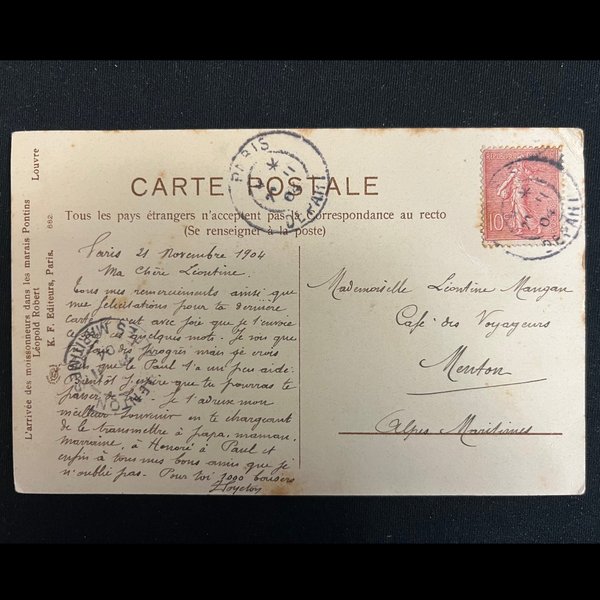 CARTE POSTALE
Tous les pays étrangers n'acceptent pas la Correspondance au recto
(Se renseigner à la poste)
L'arrivée des moissonneurs dans les marais Pontins Louvre
Léopold Robert
K. F. Editeurs, Paris. 682
Paris 21 Novembre 1904
Ma Chère Léontine.
Tous mes remerciements ainsi que
mes félicitations pour ta dernière
carte. C'est avec joie que je t'envoie
quelques mots. Je vois que
des progrès mais je crois
que le Paul t'a un peu aidé.
Bientôt j'espère que tu pourras te
passer de lui. Je t'adresse mon
meilleur souvenir en te chargeant
de le transmettre à papa, maman,
marraine, à Honoré à Paul et
enfin à tous mes bons amis que je
n'oublie pas. Pour toi 1000 baisers
Mademoiselle Léontine Mangan
Café des Voyageurs
Menton
Alpes Maritimes
PARIS
DEPART
10
DEPART
MENTON